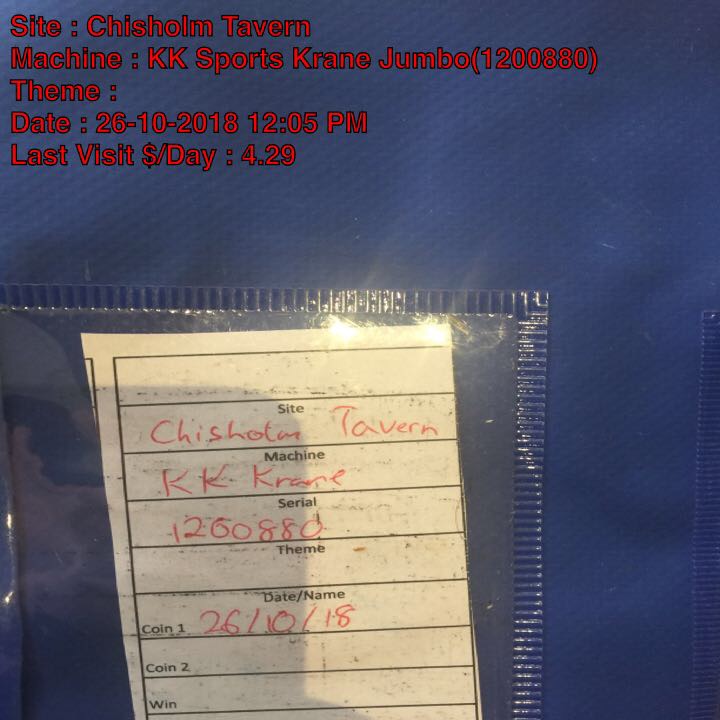 Site : Chisholm Tavern
Machine : KK Sports Krane Jumbo(1200880)
Theme :
Date : 26-10-2018 12:05 PM
Last Visit $/Day : 4.29
Site
Chisholm Tavern
Machine
KK Krane
Serial
1200880
Theme
Date/Name
Coin 1 26/10/18
Coin 2
Win